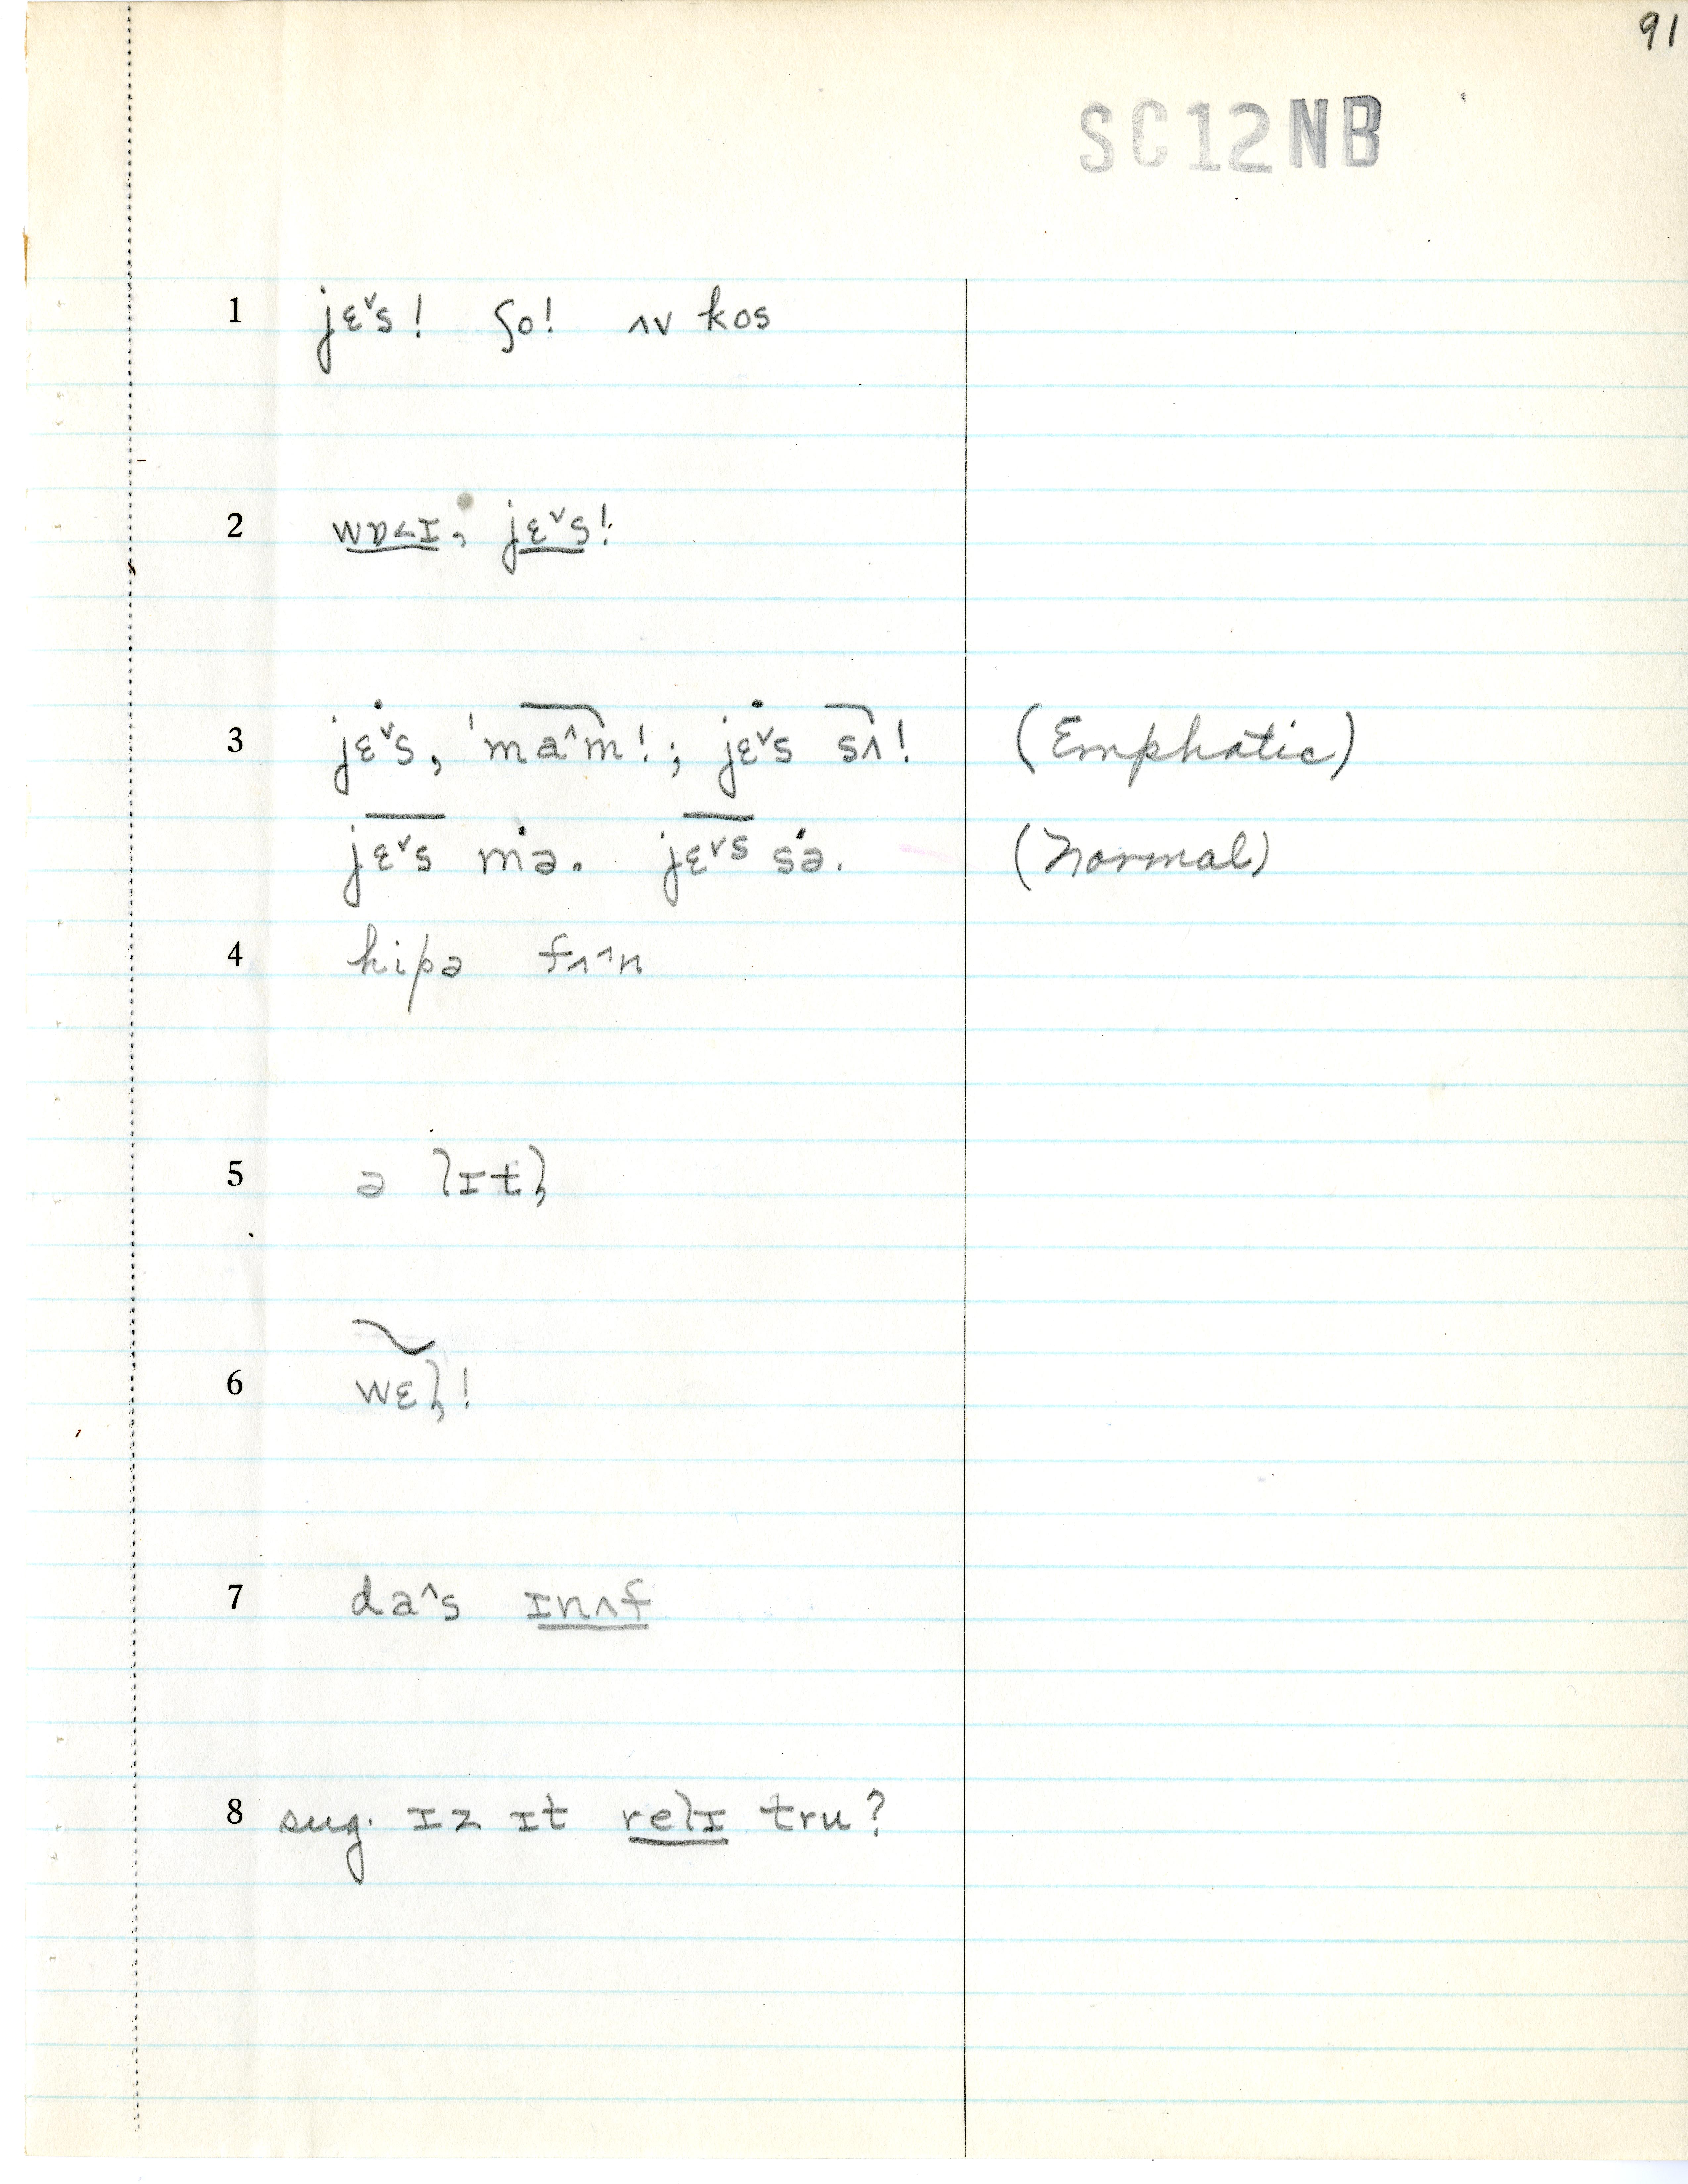 91
SC12NB
1 jɛ˅s! ʃo! ʌv kos
2 wɒ˂ɪ, jɛ˅s!
3 jɛ˅s, 'ma^m!; jɛ˅s sʌ! (Emphatic)
jɛ˅s mə. jɛ˅s sə. (Normal)
4 hipə fʌ^n
5 ə lɪtl̩
6 wɛl̩!
7 da^s ɪnʌf
8 sug. ɪz ɪt relɪ tru?